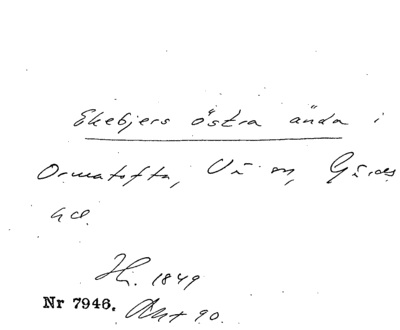 Ekebjers östra ända i
Ormatofta, Vå sn, Gärds
hd.
Hr. 1849
Nr 7946. Akt 90.